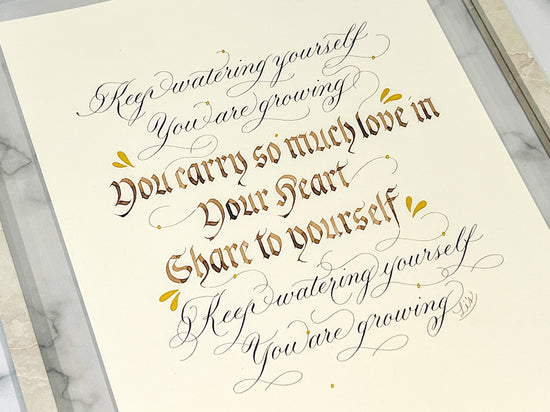 Keep watering yourself
You are growing
You carry so much love in
Your Heart
Share to yourself
Keep watering yourself
You are growing